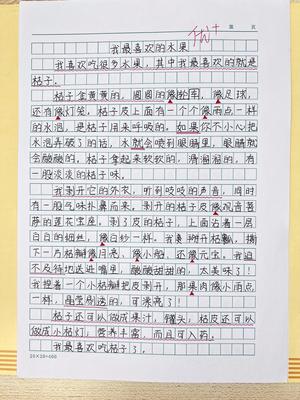 第 页
我最喜欢的水果
我喜欢吃很多水果，其中我最喜欢的就是
桔子。
桔子金黄黄的，圆圆的像轮车，像足球，
还有像灯笼。桔子皮上面有一个个像雨点一样
的水泡，是桔子用来呼吸的。如果你不小心把
水泡弄破了的话，水就会喷到眼睛里，眼睛就
会酸酸的。桔子拿起来软软的，滑溜溜的，有
一股淡淡的桔子味。
我剥开它的外衣，听到吱吱的声音，同时
有一股气味扑鼻而来。剥开的桔子皮像观音菩
萨的莲花宝座。剥了皮的桔子，上面沾着一层
白白的细丝，像白纱一样。我掰开桔瓣，摘
下一片桔瓣像月亮，像小船，还像元宝。我迫
不及待地送进嘴里，酸酸甜甜的，太美味了！
我捏着一个小桔瓣把皮剥开，那果肉像小雨点
一样，晶莹剔透的，可漂亮了！
桔子还可以做成果汁，罐头；桔皮还可以
做成小桔灯；营养丰富，而且可入药。
我最喜欢桔子了。
20×20=400